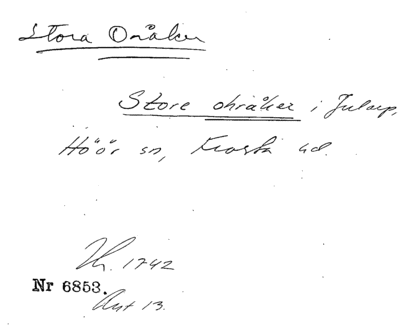 Stora Oråker
Store ohråker i Jularp,
Höör sn, Frosta hd.
Nr 6853.
1742
Akt 13.